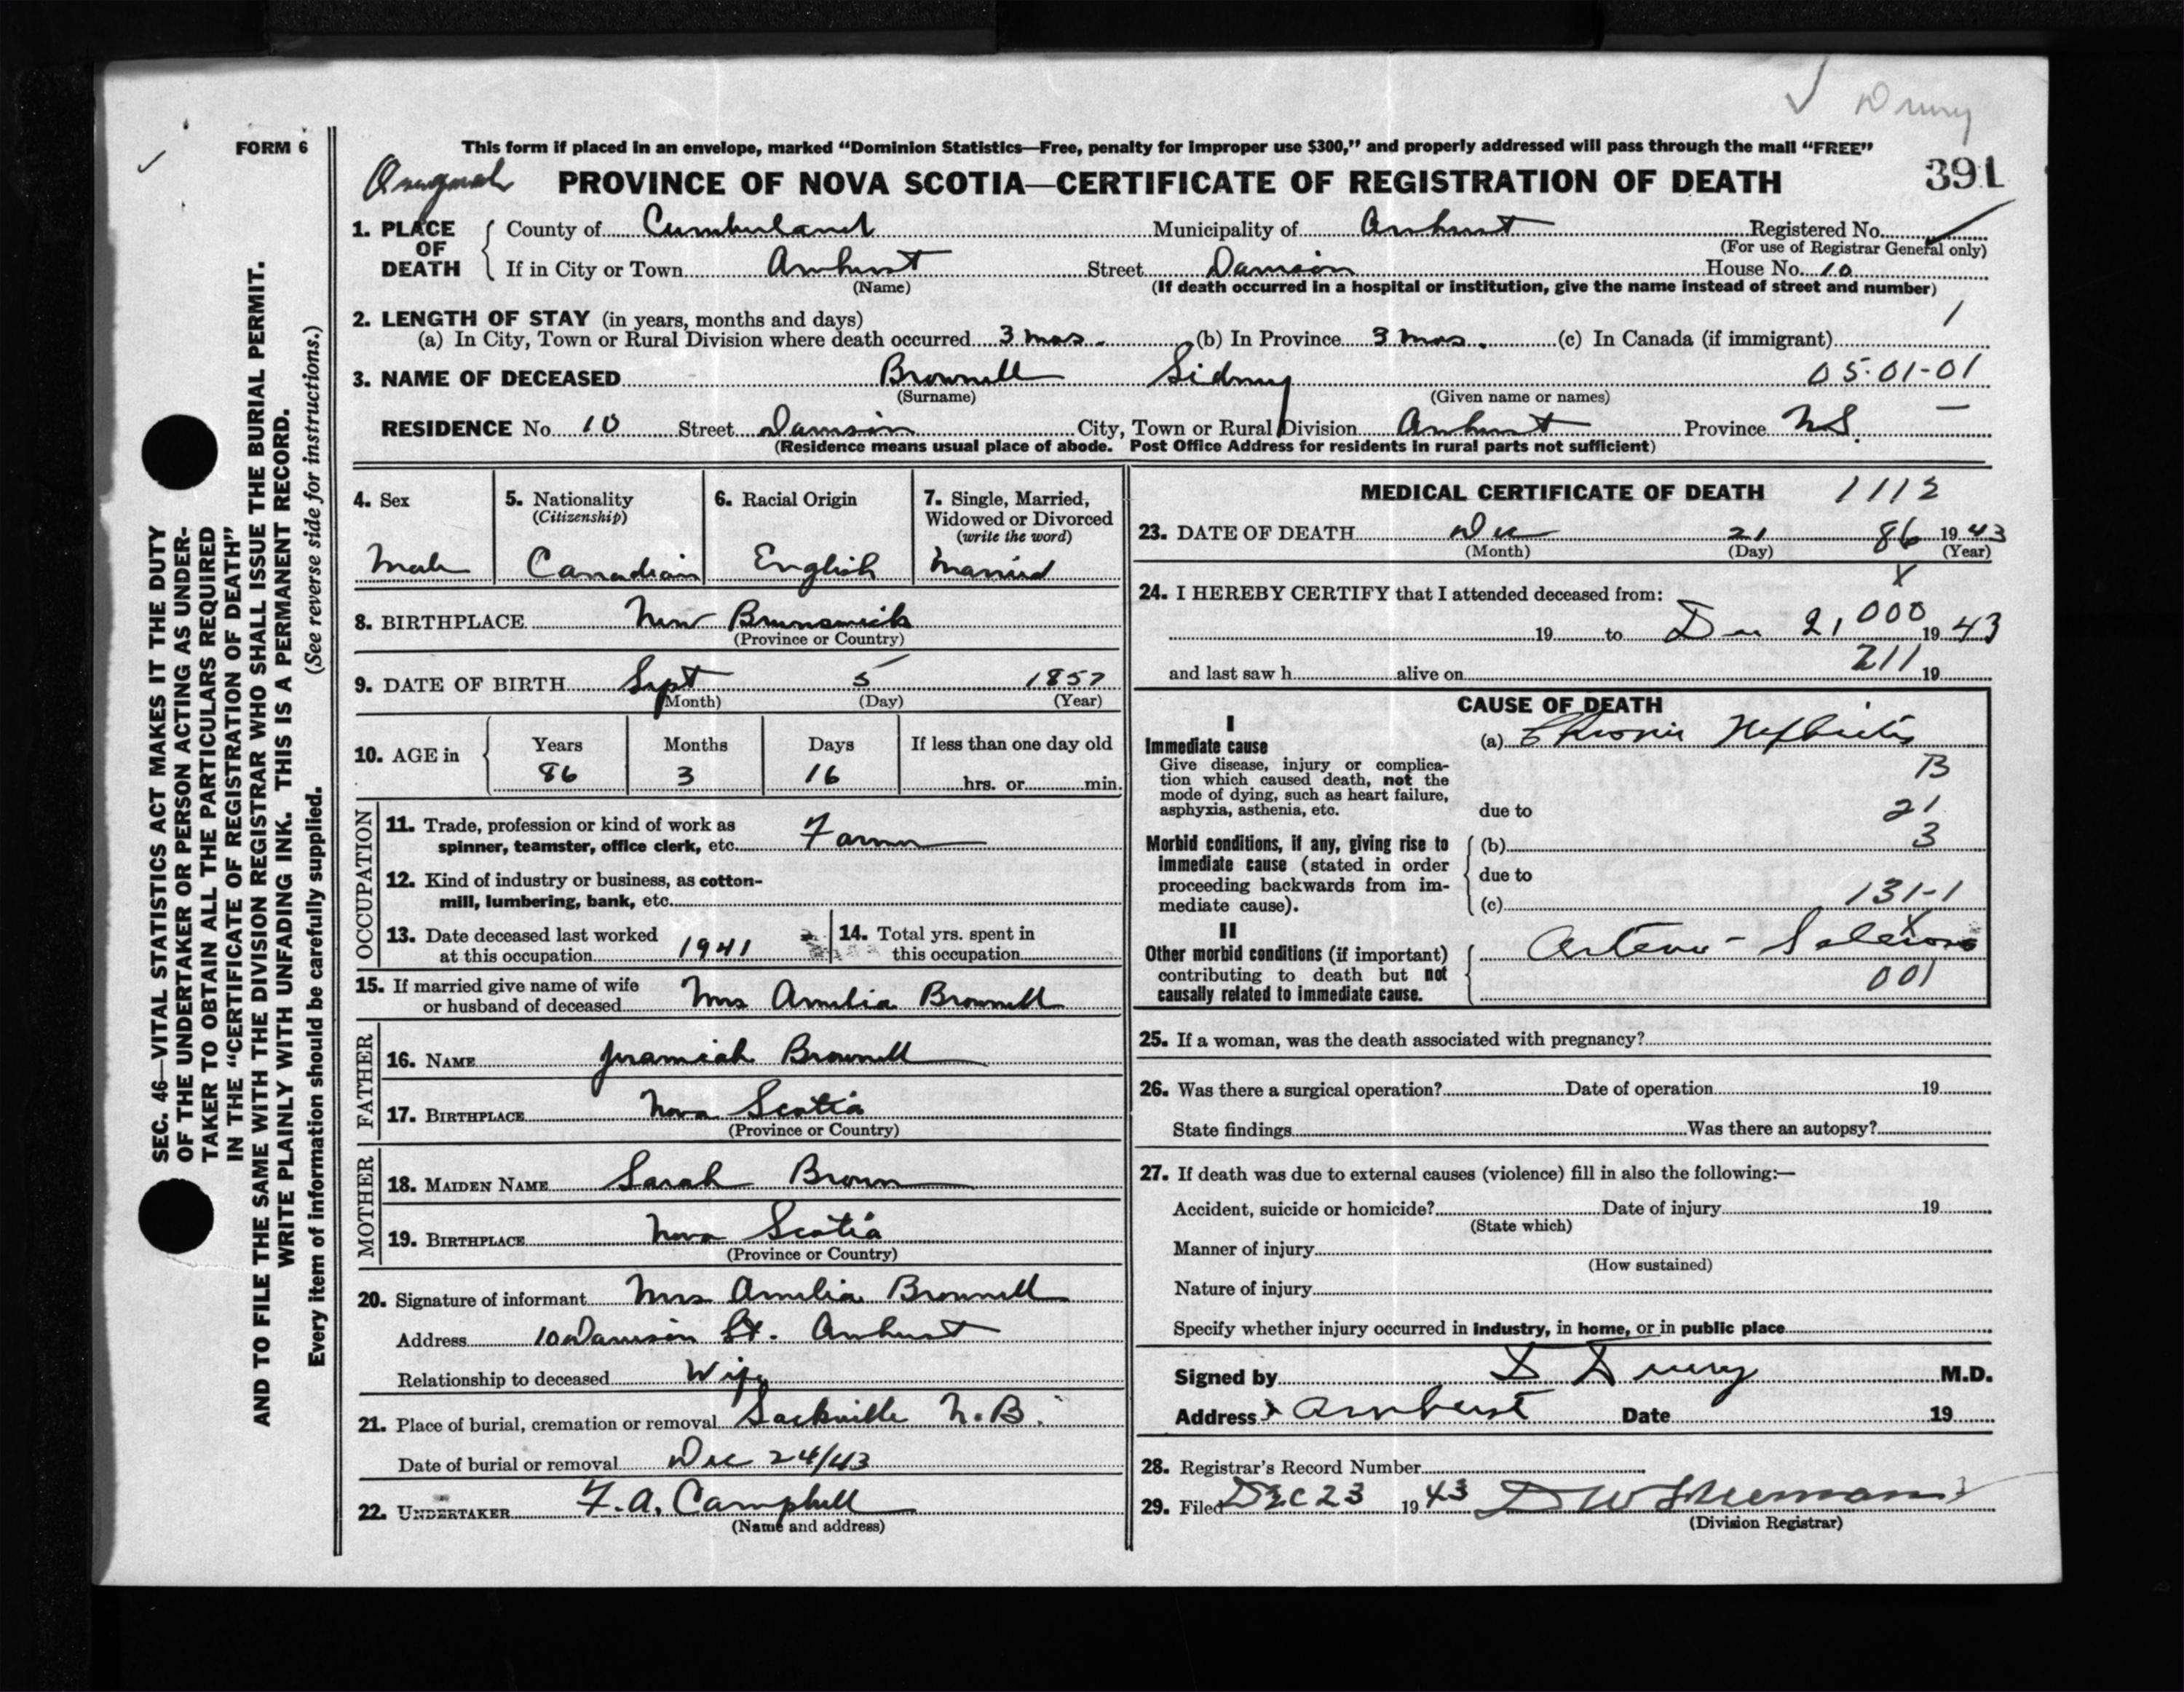 ✓ Drury
FORM 6 ✓
This form if placed in an envelope, marked "Dominion Statistics—Free, penalty for improper use $300," and properly addressed will pass through the mail "FREE"
Original PROVINCE OF NOVA SCOTIA—CERTIFICATE OF REGISTRATION OF DEATH 391
1. PLACE OF DEATH County of Cumberland Municipality of Amherst Registered No. ✓
(For use of Registrar General only)
If in City or Town Amherst Street Damson House No. 10
(Name) (If death occurred in a hospital or institution, give the name instead of street and number)
2. LENGTH OF STAY (in years, months and days) 1
(a) In City, Town or Rural Division where death occurred 3 mos. (b) In Province 3 mos. (c) In Canada (if immigrant)
3. NAME OF DECEASED Brownell Sidney 05-01-01
(Surname) (Given name or names)
RESIDENCE No. 10 Street Damson City, Town or Rural Division Amherst Province N.S. —
(Residence means usual place of abode. Post Office Address for residents in rural parts not sufficient)
4. Sex
Male
5. Nationality
(Citizenship)
Canadian
6. Racial Origin
English
7. Single, Married,
Widowed or Divorced
(write the word)
Married
8. BIRTHPLACE New Brunswick
(Province or Country)
9. DATE OF BIRTH Sept 5 1857
(Month) (Day) (Year)
10. AGE in
Years Months Days If less than one day old
86 3 16 hrs. or min.
OCCUPATION
11. Trade, profession or kind of work as
spinner, teamster, office clerk, etc. Farmer
12. Kind of industry or business, as cotton-
mill, lumbering, bank, etc.
13. Date deceased last worked
at this occupation 1941
14. Total yrs. spent in
this occupation
15. If married give name of wife
or husband of deceased Mrs Amelia Brownell
FATHER
16. NAME Jeramiah Brownell
17. BIRTHPLACE Nova Scotia
(Province or Country)
MOTHER
18. MAIDEN NAME Sarah Brown
19. BIRTHPLACE Nova Scotia
(Province or Country)
20. Signature of informant Mrs Amelia Brownell
Address 10 Damson St. Amherst
Relationship to deceased Wife
21. Place of burial, cremation or removal Sackville N.B.
Date of burial or removal Dec 24/43
22. UNDERTAKER F.A. Campbell
(Name and address)
MEDICAL CERTIFICATE OF DEATH 1112
23. DATE OF DEATH Dec 21 86 1943
(Month) (Day) (Year)
x
24. I HEREBY CERTIFY that I attended deceased from:
000
19 to Dec 21, 1943
211
and last saw h alive on 19
CAUSE OF DEATH
I
Immediate cause (a) Chronic Nephritis
Give disease, injury or complica-
tion which caused death, not the
mode of dying, such as heart failure,
asphyxia, asthenia, etc. due to
B
21
3
Morbid conditions, if any, giving rise to (b)
immediate cause (stated in order
proceeding backwards from im- due to
mediate cause). (c) 131-1
II x
Other morbid conditions (if important) Arterio-Sclerosis
contributing to death but not
causally related to immediate cause. 001
25. If a woman, was the death associated with pregnancy?
26. Was there a surgical operation? Date of operation 19
State findings Was there an autopsy?
27. If death was due to external causes (violence) fill in also the following:—
Accident, suicide or homicide? Date of injury 19
(State which)
Manner of injury
(How sustained)
Nature of injury
Specify whether injury occurred in industry, in home, or in public place
Signed by D Drury M.D.
Address Amherst Date 19
28. Registrar's Record Number
29. Filed Dec 23 1943
(Division Registrar)
SEC. 46—VITAL STATISTICS ACT MAKES IT THE DUTY
OF THE UNDERTAKER OR PERSON ACTING AS UNDER-
TAKER TO OBTAIN ALL THE PARTICULARS REQUIRED
IN THE "CERTIFICATE OF REGISTRATION OF DEATH"
AND TO FILE THE SAME WITH THE DIVISION REGISTRAR WHO SHALL ISSUE THE BURIAL PERMIT.
WRITE PLAINLY WITH UNFADING INK. THIS IS A PERMANENT RECORD.
Every item of information should be carefully supplied. (See reverse side for instructions.)